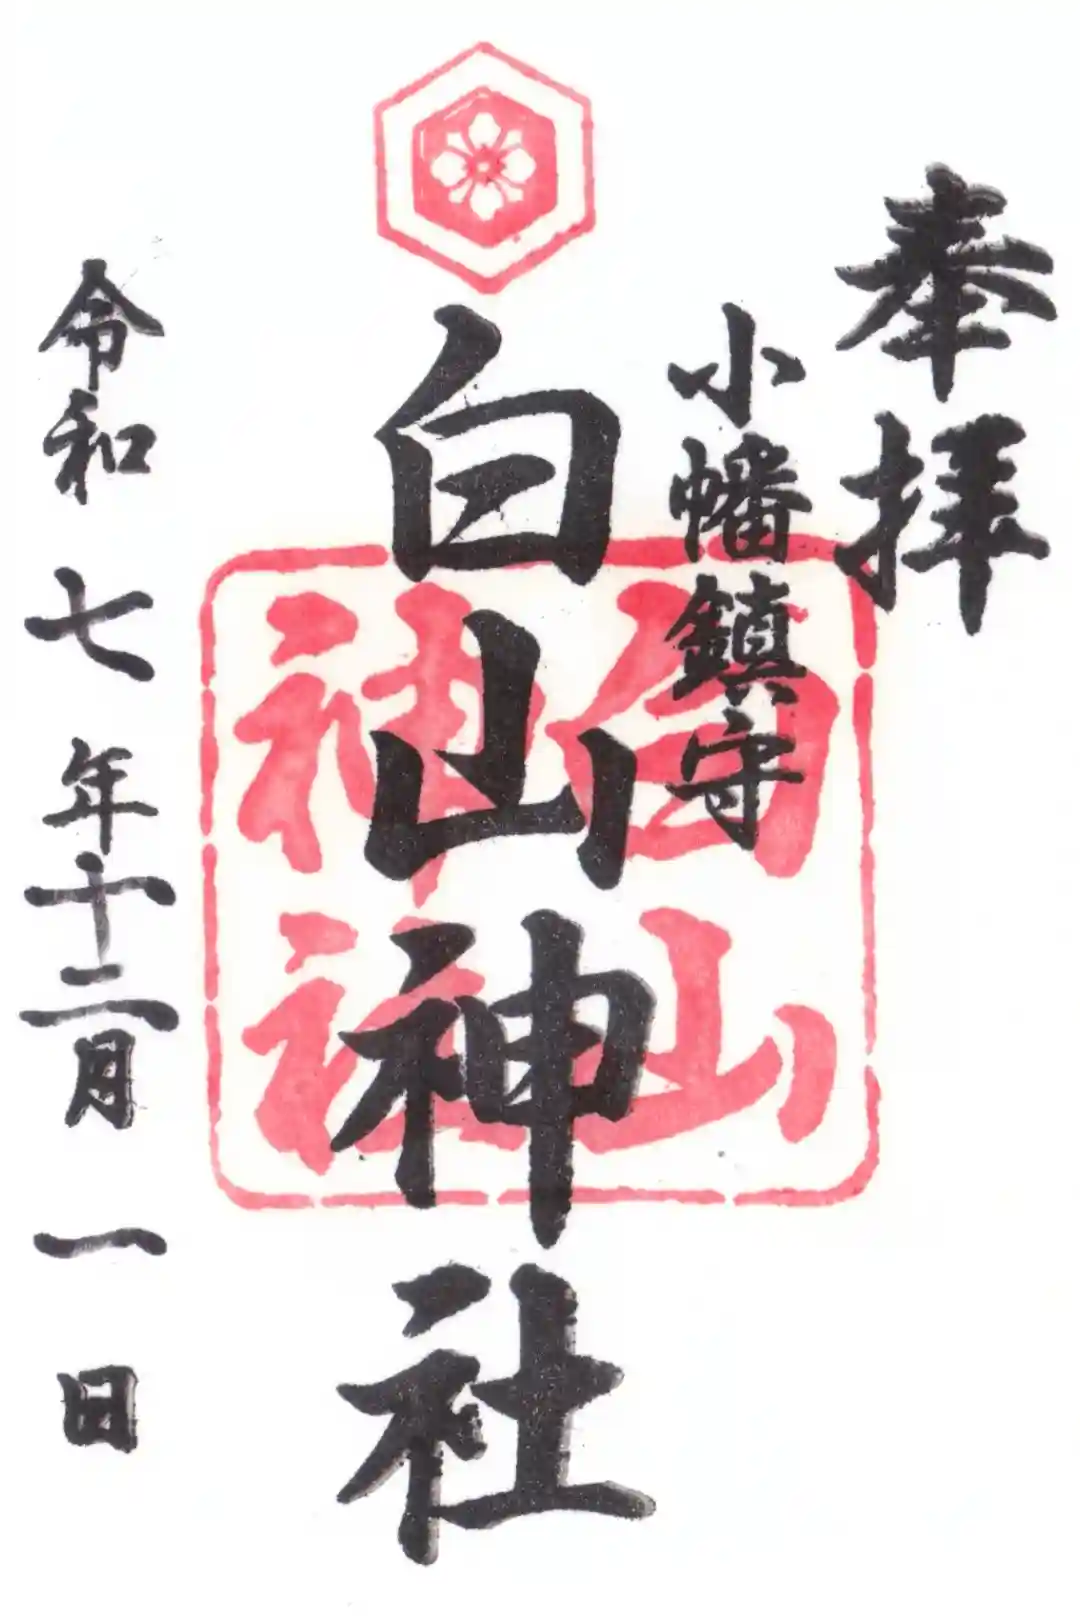 奉拝
小幡鎮守
白山神社
白山神社
令和七年十二月一日